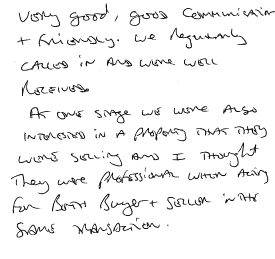 Very good, good Communication
+ Friendly. We Regularly
CALLED IN AND WERE WELL
RECEIVED
At one stage we were Also
INTERESTED IN A PROPERTY THAT THEY
WERE Selling AND I Thought
They were Professional when Acting
For Both Buyer + SELLER IN THE
SAME TRANSACTION.